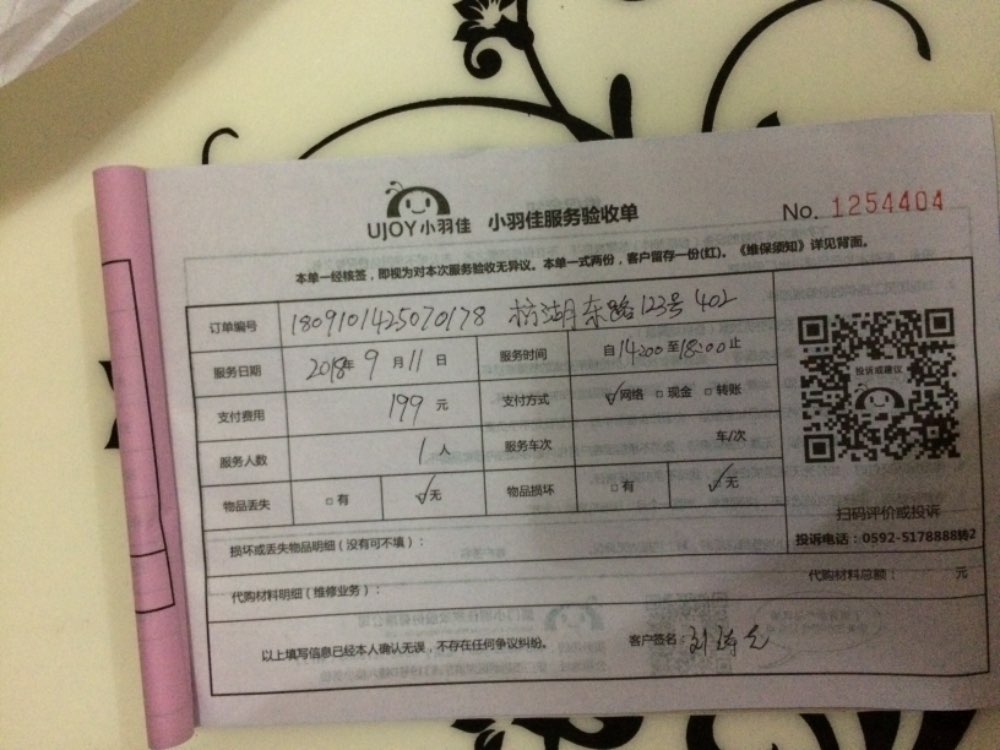 UJOY小羽佳 小羽佳服务验收单 No. 1254404
本单一经核签，即视为对本次服务验收无异议。本单一式两份，客户留存一份(红)。《维保须知》详见背面。
订单编号 1809101425070178 枋湖东路123号 402
服务日期 2018年 9 月 11 日 服务时间 自14:00至18:00止
支付费用 199 元 支付方式 ☑网络 □现金 □转账
服务人数 1 人 服务车次 车/次
物品丢失 □有 ☑无 物品损坏 □有 ☑无
投诉或建议
扫码评价或投诉
投诉电话：0592-5178888转2
损坏或丢失物品明细（没有可不填）：
代购材料明细（维修业务）： 代购材料总额： 元
以上填写信息已经本人确认无误，不存在任何争议纠纷。 客户签名：